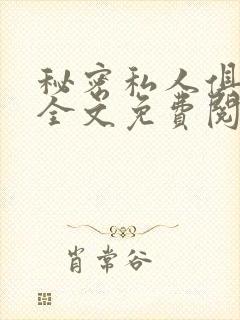 秘密私人俱
全文免費閱
肖常谷